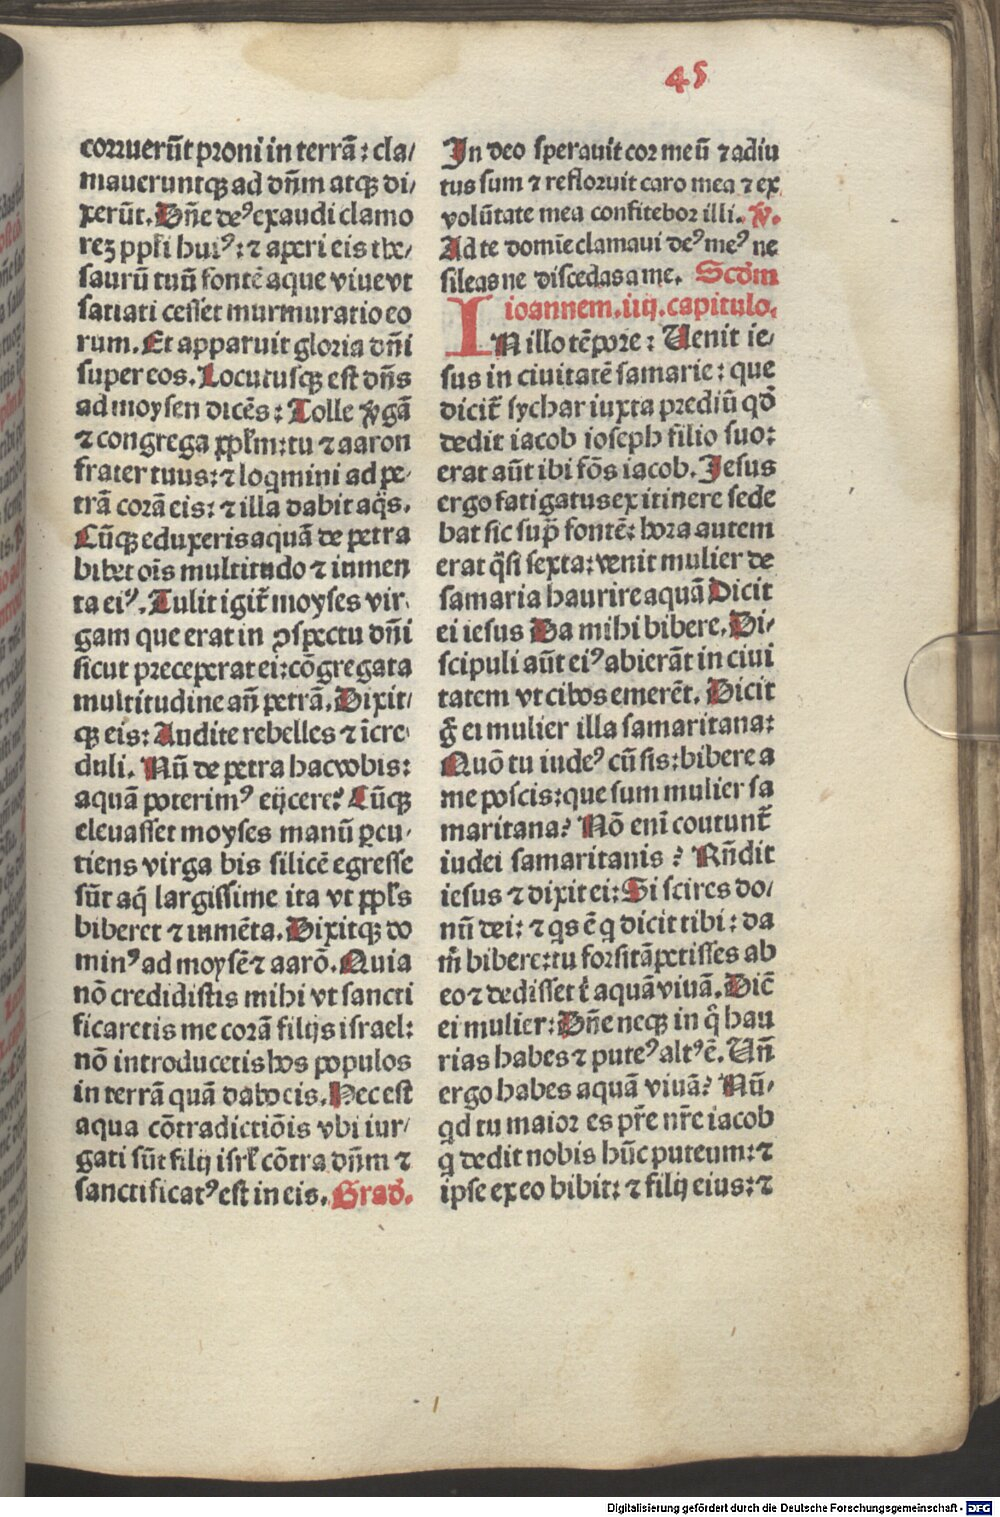 45
corruerūt proni in terrã: cla/
maueruntqꝫ ad dñm atqꝫ di/
xerūt. Dñe deꝰ exaudi clamo
reꝫ ppľi huiꝰ: ⁊ aperi eis the/
saurū tuū fontē aque viue vt
satiati cesset murmuratio eo
rum. Et apparuit gloria dñi
super eos. Locutusqꝫ est dñs
ad moysen dicēs: Tolle ꝟgã
⁊ congrega ppľm: tu ⁊ aaron
frater tuus: ⁊ loqmini ad pe/
trã corã eis: ⁊ illa dabit aq̃s.
Cūqꝫ eduxeris aquã de petra
bibet oīs multitudo ⁊ iumen
ta eiꝰ. Tulit igit̃ moyses vir/
gam que erat in ꝯspectu dñi
sicut preceperat ei: cōgregata
multitudine añ petrã. Dixit/
qꝫ eis: Audite rebelles ⁊ īcre/
duli. Nū de petra hac vobis:
aquã poterimꝰ eijcere? Cūqꝫ
eleuasset moyses manū ꝑcu/
tiens virga bis silicē egresse
sūt aq̃ largissime ita vt ppľs
biberet ⁊ iumēta. Dixitqꝫ do
minꝰ ad moysē ⁊ aarō. Quia
nō credidistis mihi vt sancti
ficaretis me corã filijs israel:
nō introducetis hos populos
in terrã quã dabo eis. Hec est
aqua cōtradictiōis vbi iur/
gati sūt filij isrľ cōtra dñm ⁊
sanctificatꝰ est in eis. Grad̃.
In deo sperauit cor meū ⁊ adiu
tus sum ⁊ refloruit caro mea ⁊ ex
volūtate mea confitebor illi. ꝟ.
Ad te domīe clamaui deꝰ meꝰ ne
sileas ne discedas a me. Scd̃m
ioannem. iiij. capitulo.
IN illo tēpore: Uenit ie/
sus in ciuitatē samarie: que
dicit̃ sychar iuxta prediū qd̃
dedit iacob ioseph filio suo:
erat aūt ibi fōs iacob. Jesus
ergo fatigatus ex itinere sede
bat sic sup̃ fontē: hora autem
erat q̃si sexta: venit mulier de
samaria haurire aquã Dicit
ei iesus Da mihi bibere. Di/
scipuli aūt eiꝰ abierãt in ciui
tatem vt cibos emerēt. Dicit
g̃ ei mulier illa samaritana:
Quō tu iudeꝰ cū sis: bibere a
me poscis: que sum mulier sa
maritana? Nō eni coutunt̃
iudei samaritanis? Rñdit
iesus ⁊ dixit ei: Si scires do/
nū dei: ⁊ qs ē q dicit tibi: da
m̃ bibere: tu forsitã petisses ab
eo ⁊ dedisset t̃ aquã viuã. Dic̃
ei mulier: Dñe neqꝫ in q̃ hau
rias habes ⁊ puteꝰ altꝰ ē. Uñ
ergo habes aquã viuã? Nū/
qd tu maior es pr̃e nr̃e iacob
q dedit nobis hūc puteum: ⁊
ipse ex eo bibit: ⁊ filij eius: ⁊
Digitalisierung gefördert durch die Deutsche Forschungsgemeinschaft - DFG